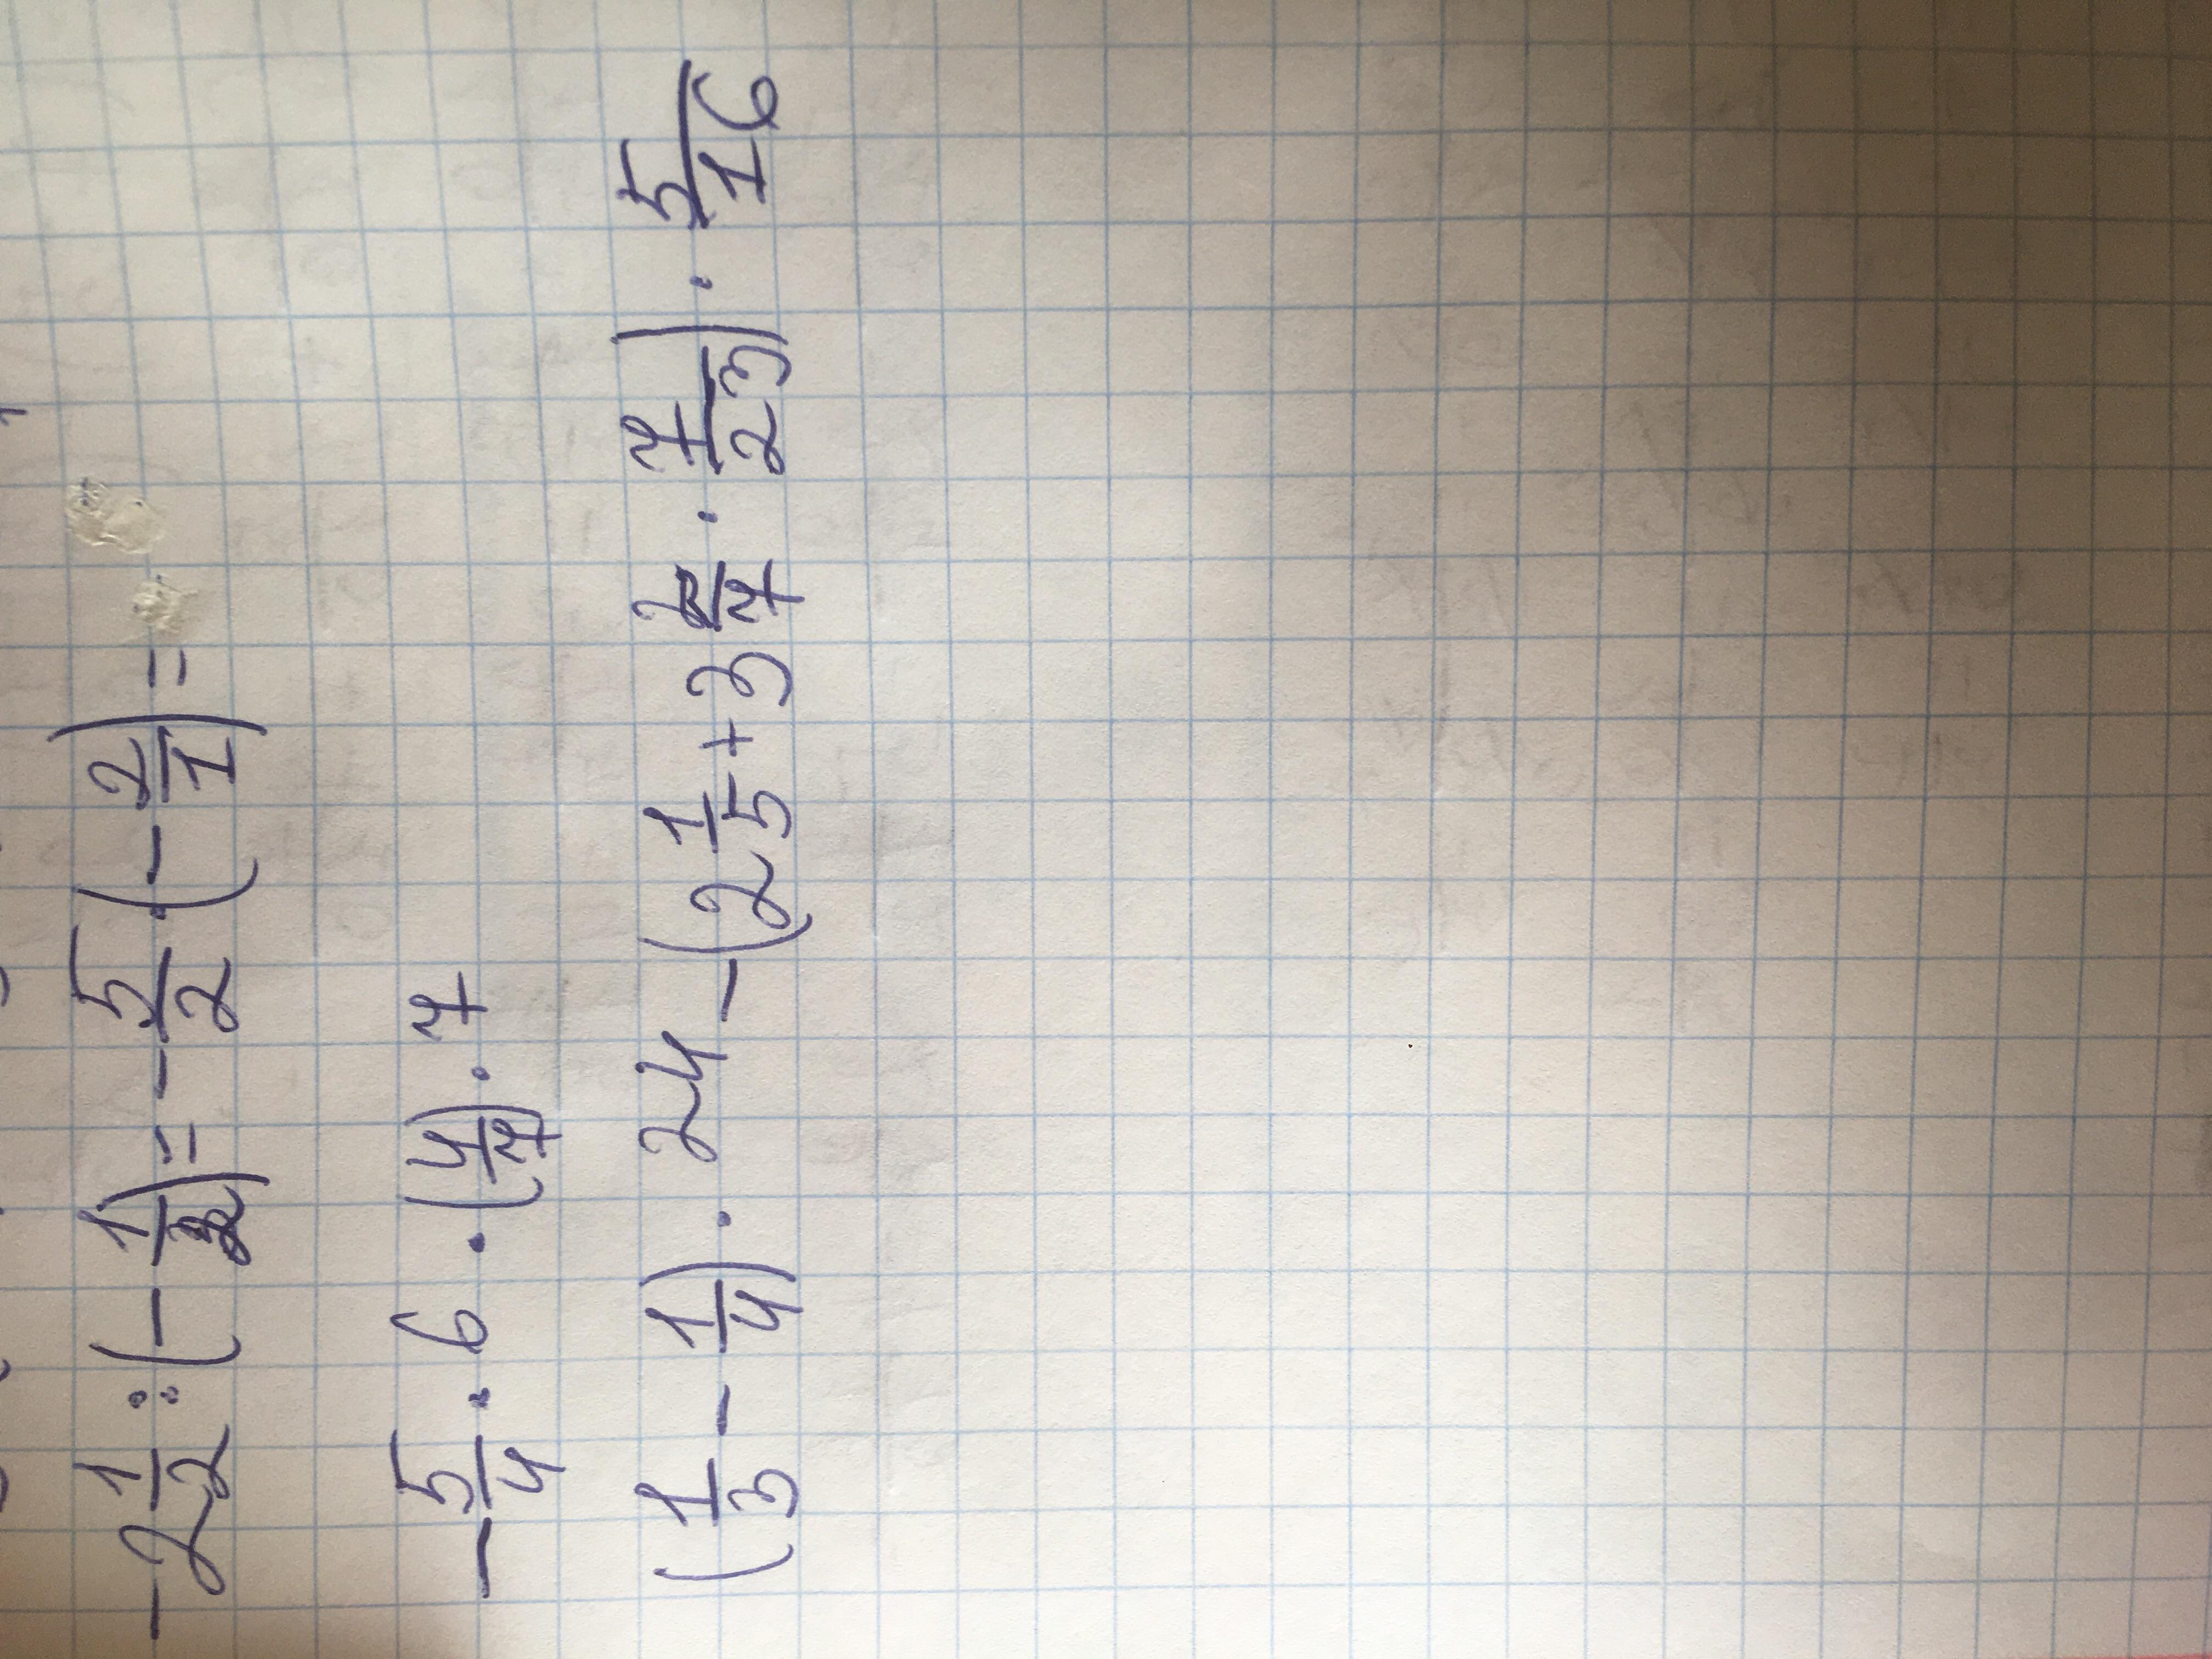 -2 1/2 : (- 1/2) = - 5/2 · (- 2/1) =
- 5/4 · 6 · (4/7) · 7
(1/3 - 1/4) · 24 - (2 1/5 + 3 2/7 · 7/23) · 5/16